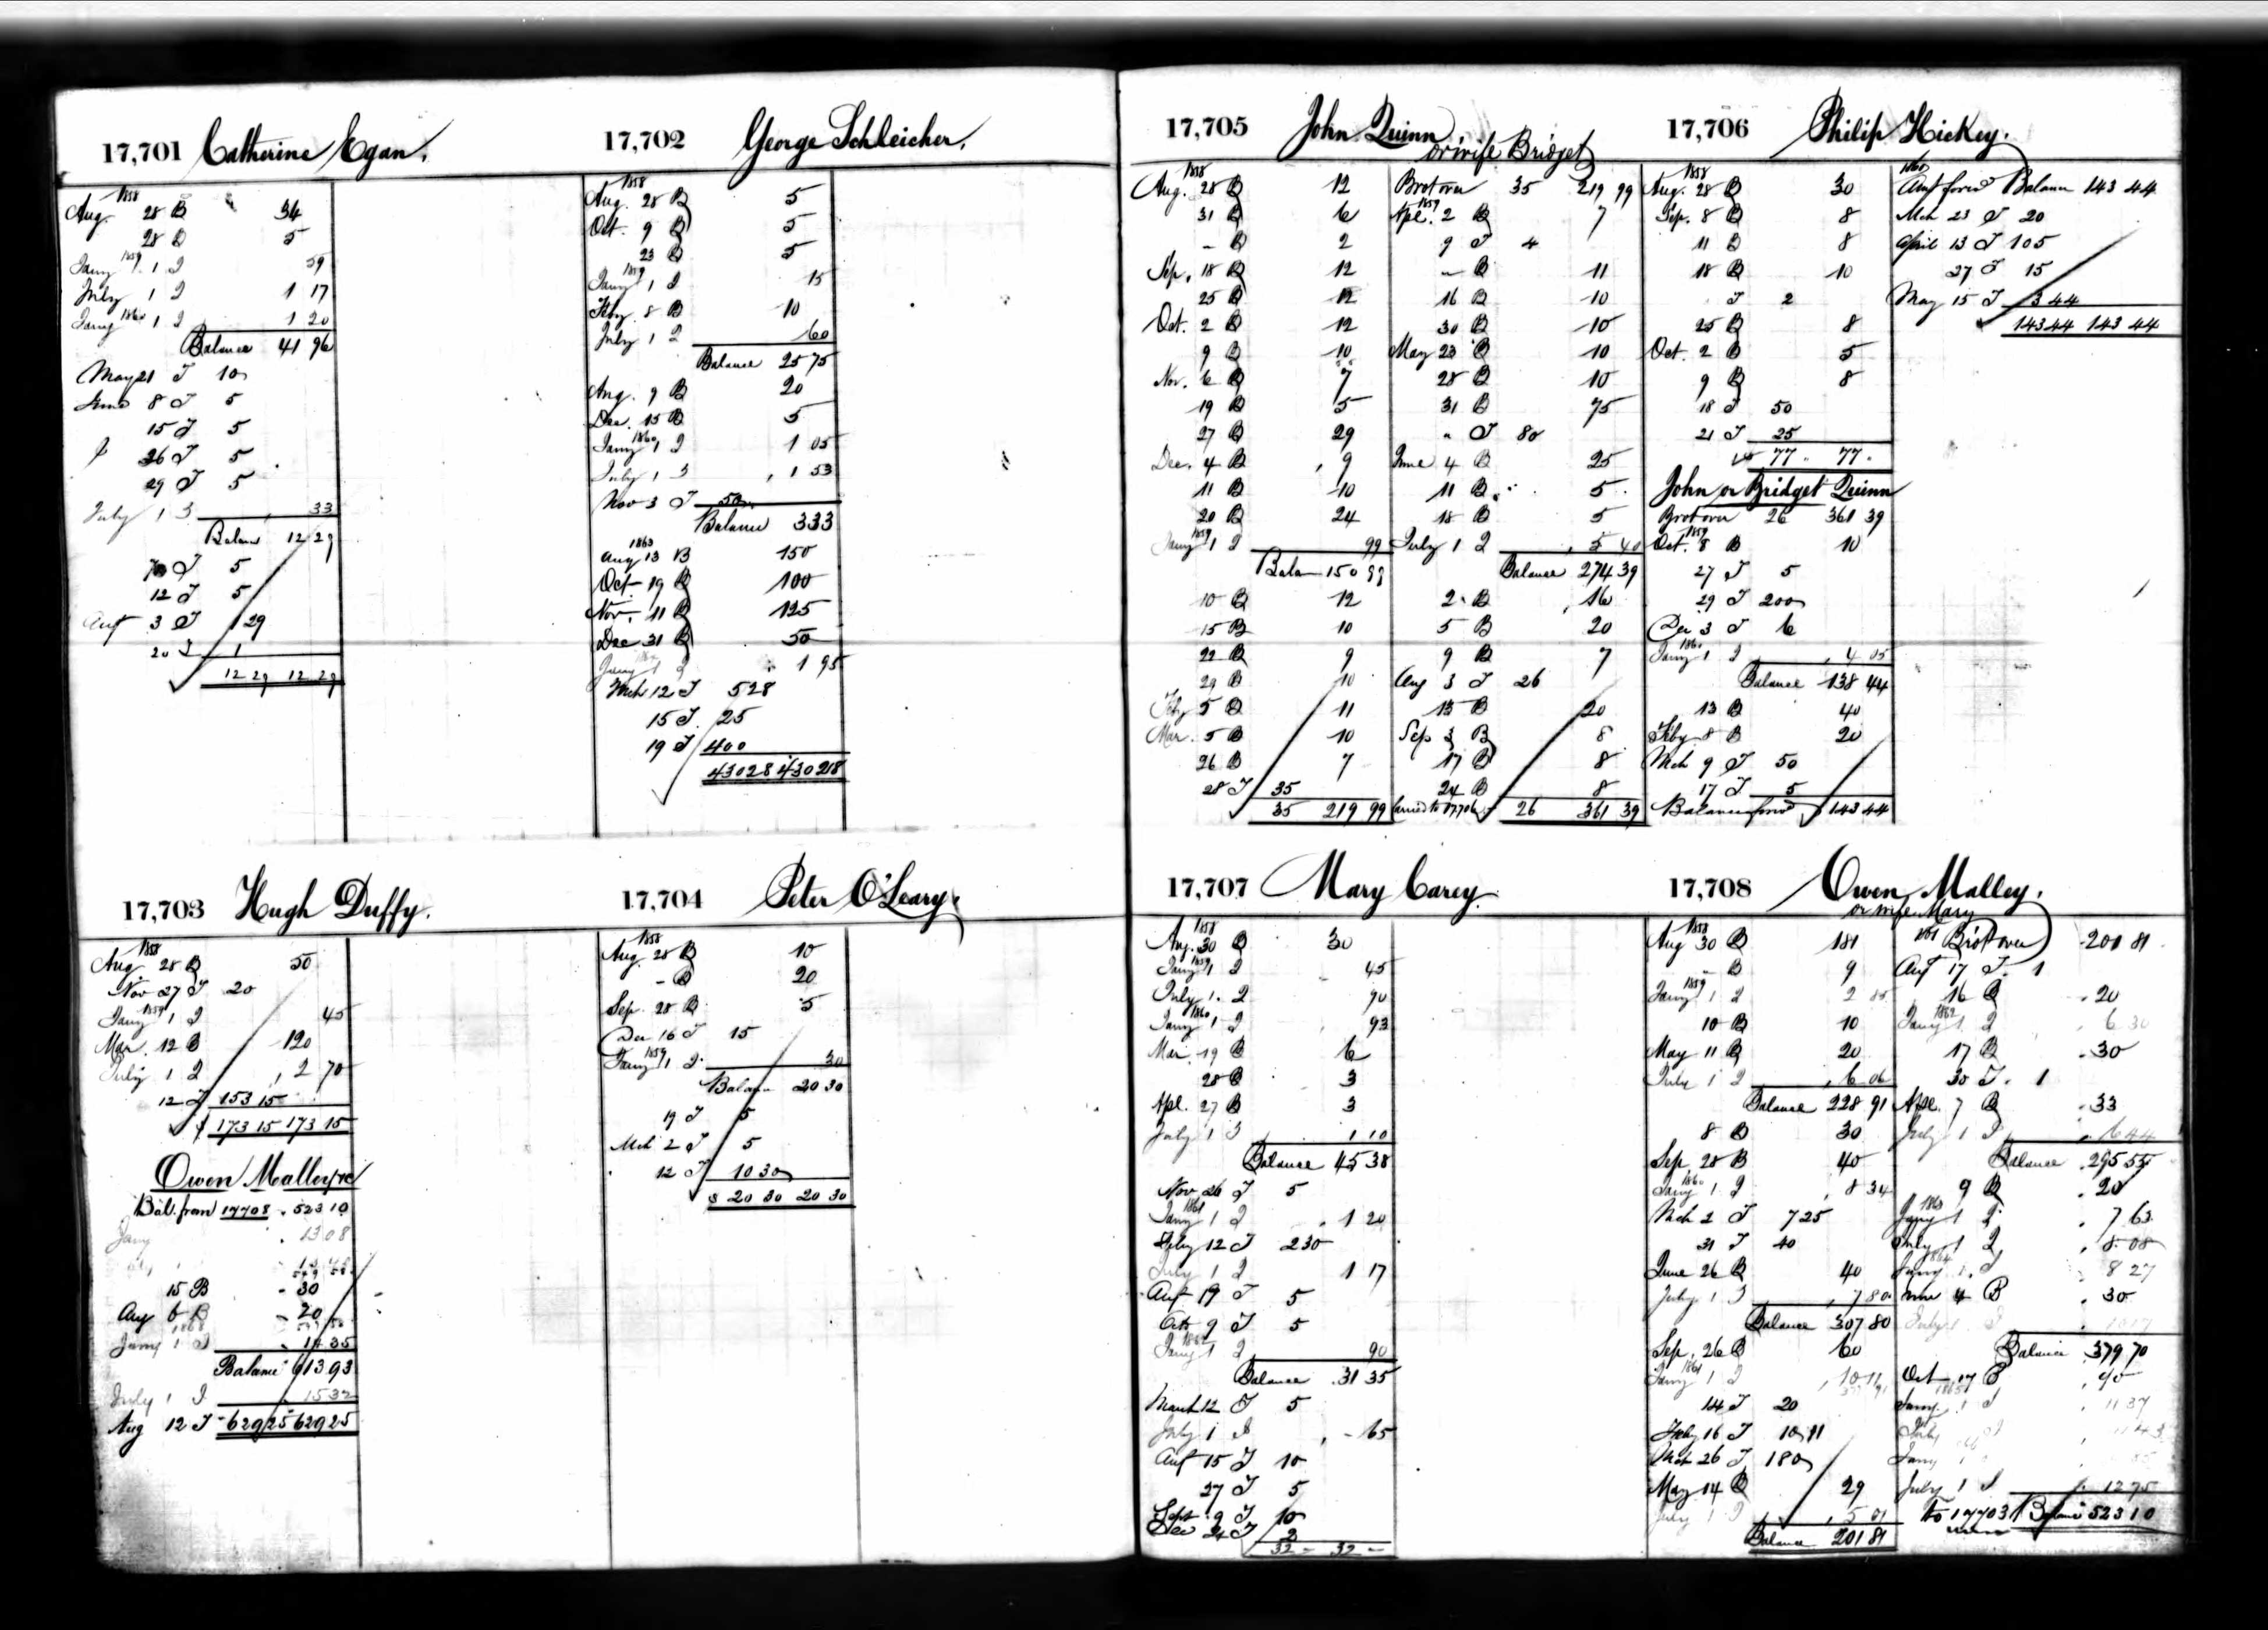 17,701 Catherine Egan.
1858
Aug. 28 B 34
28 B 5
1859
Jany 1 I 59
July 1 I 1 17
Jany 1860 1 I 1 20
Balance 41 96
May 21 T 10
June 8 T 5
15 T 5
26 T 5
29 T 5
July 1 I 33
Balance 12 29
T 5
12 T 5
Augt 3 T 1 29
20 T 1
12 29 12 29
17,702 George Schleicher.
1858
Aug. 28 B 5
Oct. 9 B 5
23 B 5
1859
Jany 1 I 15
Feby. 8 B 10
July 1 I 60
Balance 25 75
Aug. 9 B 20
Dec. 15 B 5
1860
Jany 1 I 1 05
July 1 I 1 53
Nov 3 T 50
Balance 3 33
1863
Aug 13 B 150
Oct. 19 B 100
Nov. 11 B 125
Dec 31 B 50
Jany 1 I 1 95
Mch 12 T 5 28
15 T 25
19 T 400
430 28 430 28
17,703 Hugh Duffy.
1858
Aug. 28 B 50
Nov 27 T 20
1859
Jany 1 I 45
Mar. 12 B 120
July 1 I 2 70
12 T 153 15
$ 173 15 173 15
Owen Malley
Bal. from 17708 523 10
Jany 13 08
15 B 30
Aug 6 B 20
1868
Jany 1 I 14 35
Balance 613 93
July 1 I 15 32
Aug 12 T 629 25 629 25
17,704 Peter O'Leary.
1858
Aug. 28 B 10
- B 20
Sep. 28 B 5
Dec 16 T 15
1859
Jany 1 I 30
Balance 20 30
19 T 5
Mch 2 T 5
12 T 10 30
$ 20 30 20 30
17,705 John Quinn
or wife Bridget
1858
Aug. 28 B 12
31 B 6
- B 2
Sep. 18 B 12
25 B 12
Oct. 2 B 12
9 B 10
Nov. 6 B 7
19 B 5
27 B 29
Dec. 4 B 9
11 B 10
20 B 24
1859
Jany 1 I 99
Balan 150 99
10 B 12
15 B 10
22 B 9
29 B 10
Feby 5 B 11
Mar. 5 B 10
26 B 7
28 T 35
35 219 99
Brotover 35 219 99
1859
Apl. 2 B 7
9 T 4
" B 11
16 B 10
30 B 10
May 23 B 10
28 B 10
31 B 75
" T 80
June 4 B 25
11 B 5
18 B 5
July 1 I 5 40
Balance 274 39
2 B 16
5 B 20
9 B 7
Aug 3 T 26
13 B 20
Sep 3 B 8
17 B 8
24 B 8
carried to 17706 26 361 39
17,706 Philip Hickey.
1858
Aug. 28 B 30
Sep. 8 B 8
11 B 8
18 B 10
T 2
25 B 8
Oct. 2 B 5
9 B 8
18 T 50
21 T 25
77 77
John or Bridget Quinn
Brotover 26 361 39
1859
Oct. 8 B 10
27 T 5
29 T 200
Dec 3 T 6
1860
Jany 1 I 4 05
Balance 138 44
13 B 40
Feby 8 B 20
Mch 9 T 50
17 T 5
Balance forwd 143 44
1860
Amt forwd Balance 143 44
Mch 23 T 20
April 13 T 105
27 T 15
May 15 T 3 44
143 44 143 44
17,707 Mary Carey.
1858
Aug. 30 B 30
1859
Jany 1 I 45
July 1 I 90
1860
Jany 1 I 93
Mar. 19 B 6
28 B 3
Apl. 27 B 3
July 1 I 1 10
Balance 45 38
Nov 26 T 5
1861
Jany 1 I 1 20
Feby 12 T 2 30
July 1 I 1 17
Augt 19 T 5
Octr 9 T 5
1862
Jany 1 I 90
Balance 31 35
March 12 T 5
July 1 I 65
Augt 15 T 10
27 T 5
Sept 9 T 10
Dec 24 T 2
32 - 32 -
17,708 Owen Malley.
or wife Mary
1858
Aug 30 B 181
" B 9
1859
Jany 1 I 2 85
10 B 10
May 11 B 20
July 1 I 6 06
Balance 228 91
8 B 30
Sep. 28 B 40
1860
Jany 1 I 8 34
Mch 2 T 7 25
31 T 40
June 26 B 40
July 1 I 7 80
Balance 307 80
Sep. 26 B 60
1861
Jany 1 I 10 11
14 T 20
Feby 16 T 10 11
Mch 26 T 180
May 14 B 29
July 1 I 5 01
Balance 201 81
1861 Brotover 201 81
Augt 17 T 1
16 B 20
1862
Jany 1 I 6 30
17 B 30
30 T 1
Apl. 7 B 33
July 1 I 6 44
Balance 295 55
9 B 20
1863
Jany 1 I 7 63
July 1 I 8 08
1864
Jany 1 I 8 27
June 4 B 30
July 1 I 10 17
Balance 379 70
Oct 17 B 90
1865
Jany. 1 I 11 37
July
Jany
July 1 I 12 75
to 17703 Balance 523 10